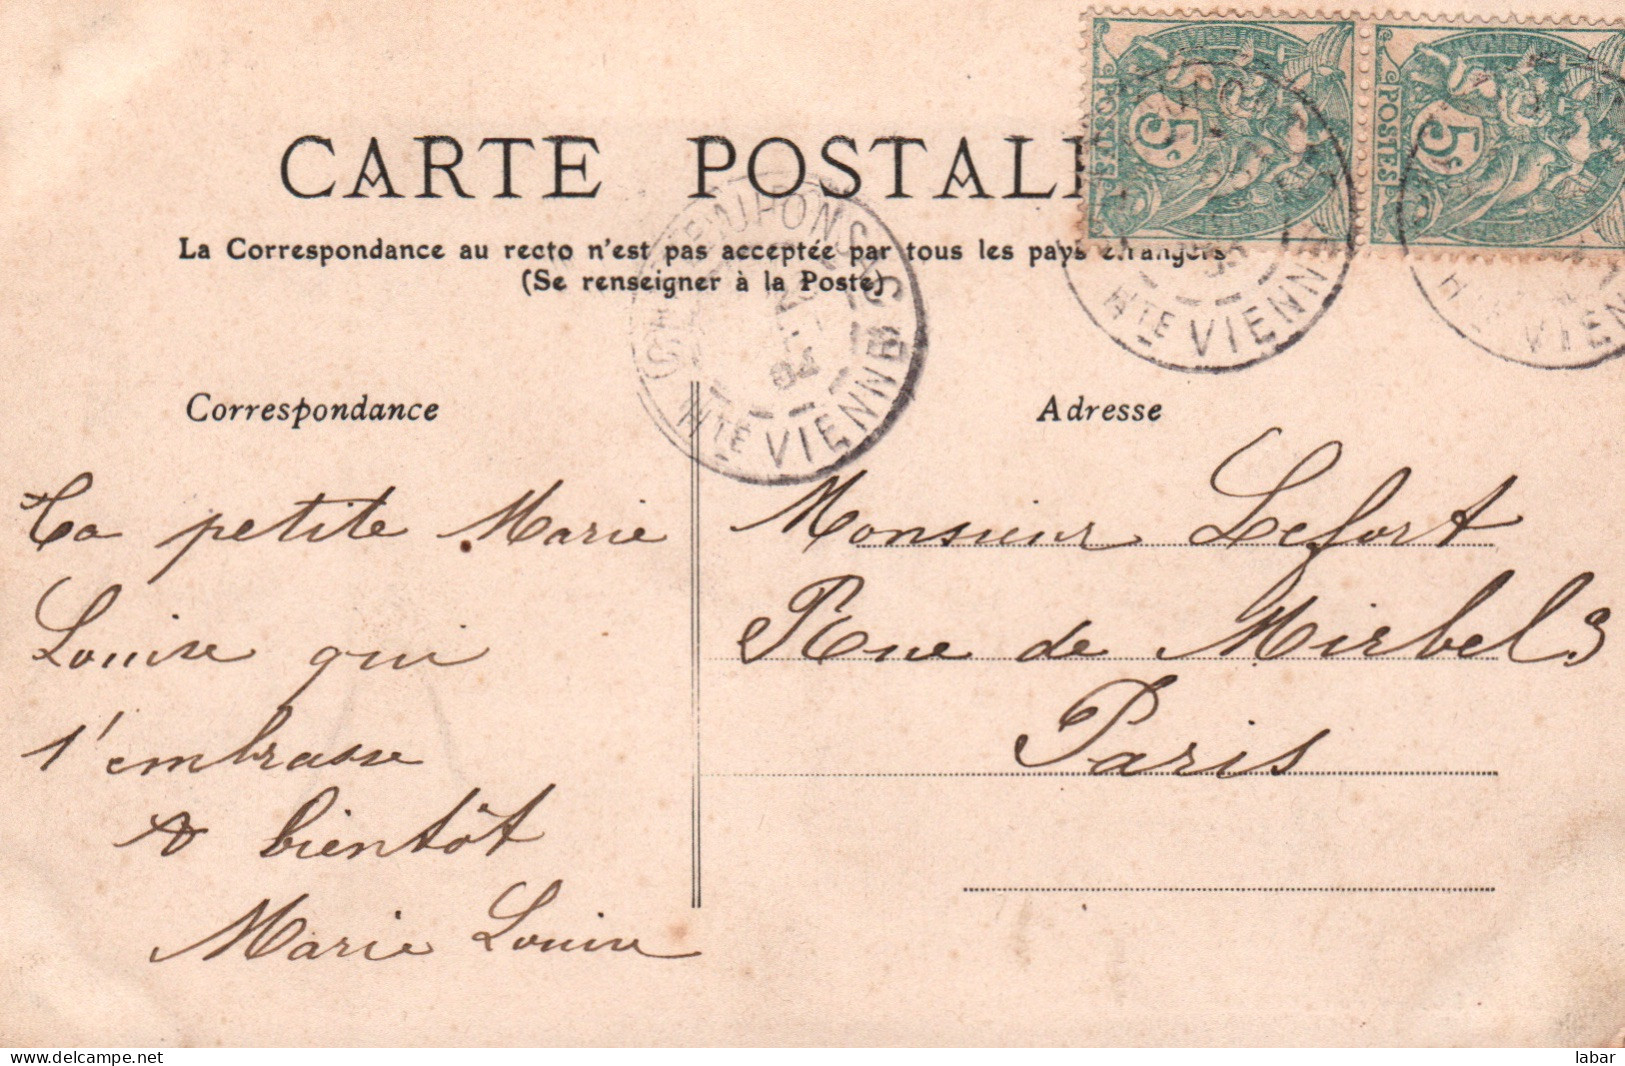 CARTE POSTALE
La Correspondance au recto n'est pas acceptée par tous les pays étrangers
(Se renseigner à la Poste)
POSTES 5c
POSTES 5c
Hte VIENNE
Hte VIENN
VIEN
Correspondance
Ta petite Marie
Louise qui
t'embrasse
à bientôt
Marie Louise
Adresse
Monsieur Lefort
Rue de Mirbel 3
Paris
delcampe.net
labar